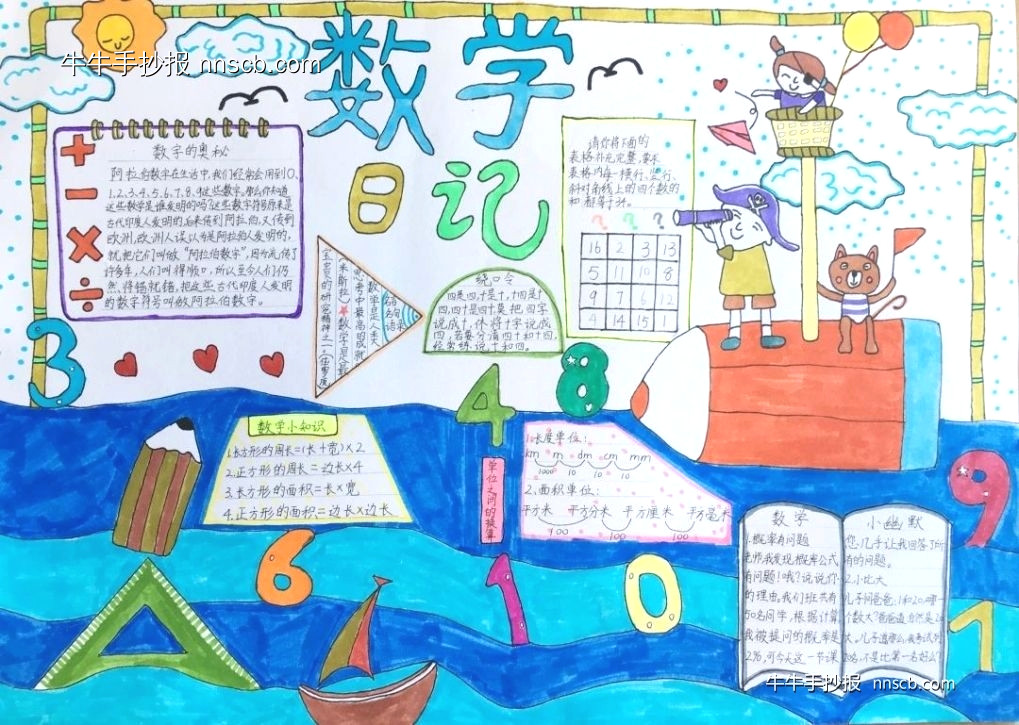 牛牛手抄报 nnscb.com
数学
日记
数字的奥秘
阿拉伯数字在生活中,我们经常会用到0、
1、2、3、4、5、6、7、8、9这些数字。那么你知道
这些数字是谁发明的吗?这些数字符号原来是
古代印度人发明的,后来传到阿拉伯,又传到
欧洲,欧洲人误以为是阿拉伯人发明的,
就把它们叫做“阿拉伯数字”,因为流传了
许多年,人们叫得顺口,所以至今人们仍
然将错就错,把这些古代印度人发明
的数字符号叫做阿拉伯数字。
+
-
×
÷
请你将下面的
表格补充完整,要求
表格内每一横行、竖行、
斜对角线上的四个数的
和都等于34。
? ? ?
16 2 3 13
5 11 10 8
9 7 6 12
4 14 15 1
名人名句语录
数学是人类
思考中最高的成就。
(米斯拉)
★数学是最
宝贵的研究精神之一。(华罗庚)
绕口令
四是四,十是十,十四是十
四,四十是四十,莫把四字
说成十,休将十字说成
四,若要分清四十和十四,
经常练说十和四。
3
8
4
9
6
1
0
7
数学小知识
1.长方形的周长=(长+宽)×2
2.正方形的周长=边长×4
3.长方形的面积=长×宽
4.正方形的面积=边长×边长
单位之间的换算
1.长度单位:
km m dm cm mm
1000 10 10 10
2.面积单位:
平方米 平方分米 平方厘米 平方毫米
100 100 100
数学
1.概率有问题
老师,我发现概率公式
有问题!哦?说说你
的理由,我们班共有
50名同学,根据计算
我被提问的概率是
2%,可今天这一节课
小幽默
您几乎让我回答了所
有的问题。
2.小比大
儿子问爸爸:1和20,哪一
个数大?爸爸道:自然是20
大。儿子道:那么,我考试列
20名,不是比第一名好么?
牛牛手抄报 nnscb.com